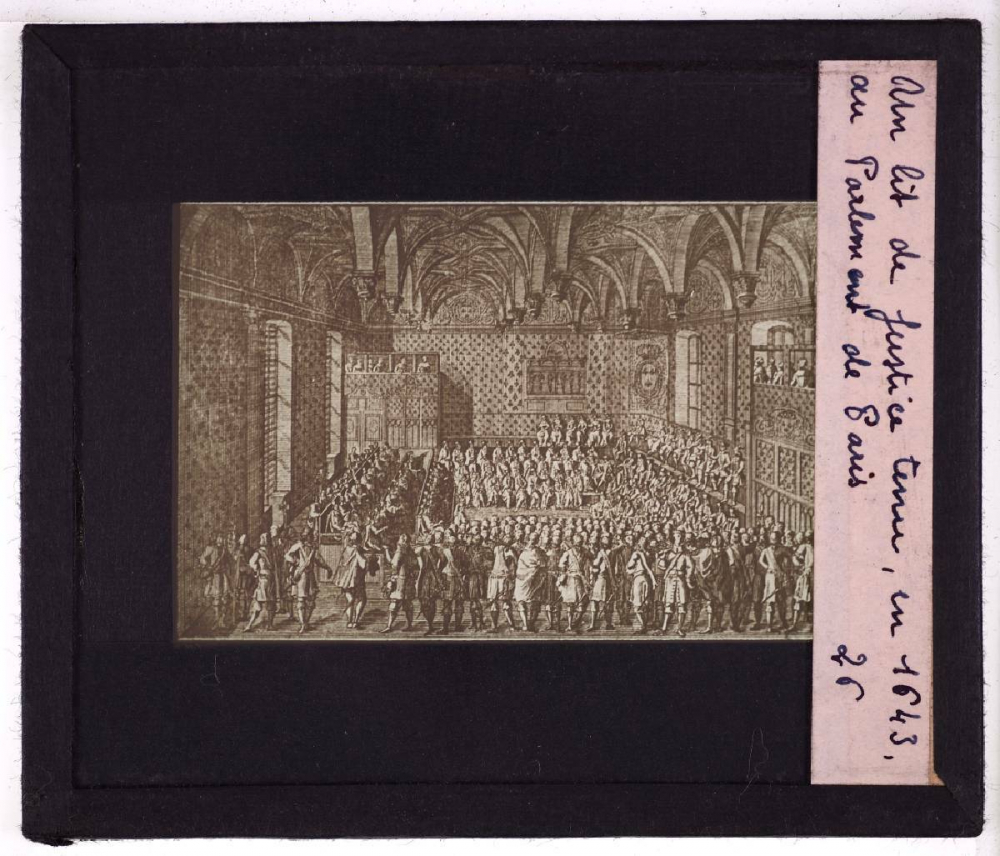 Un lit de justice tenu, en 1643,
au Parlement de Paris 26